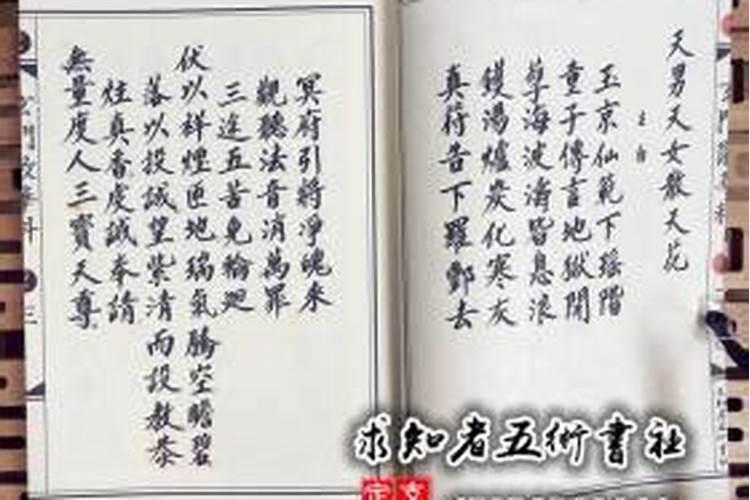 天男天女散天花
玉京仙範下瑶階
童子傳言地獄開
孽海波濤皆息浪
鑊湯爐炭化寒灰
真符告下羅酆去
冥府引將淨魄來
觀聽法音消萬罪
三途五苦免輪廻
伏以祥煙匝地瑞氣騰空瞻碧
落以投誠望紫清而設教恭
炷真香虔誠奉請
無量度人三寶天尊
求知者五術書社